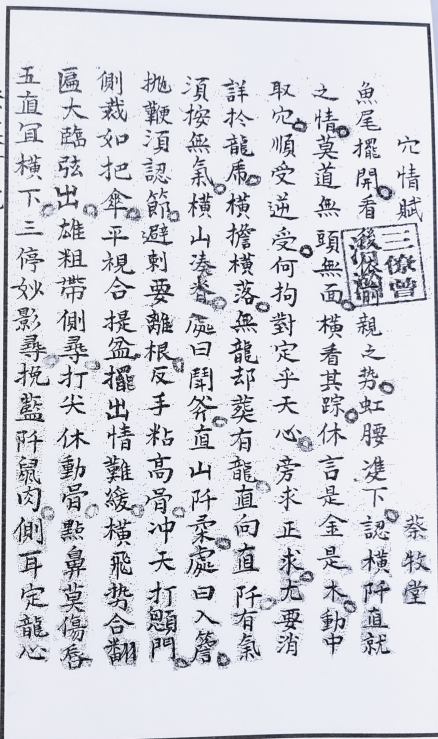 穴情賦
蔡牧堂
三僚曾
魚尾擺開看後親之势虹腰進下認橫阡直就
之情莫道無頭無面橫看其踪休言是金是木動中
取穴順受逆受何拘對定乎天心旁求正求尤要消
詳扵龍虎橫擔橫落無龍却葬有龍直向直阡有氣
須按無氣橫山凑脊處曰鬪斧直山阡柔處曰入簷
抛鞭須認節避刺要離根反手粘高骨冲天打顖門
側裁如把傘平視合提盆擺出情難緩橫飛势合翻
匾大臨弦出雄粗帶側尋打尖休動骨點鼻莫傷唇
五直冝橫下三停妙影尋挽藍阡鼠肉側耳定龍心